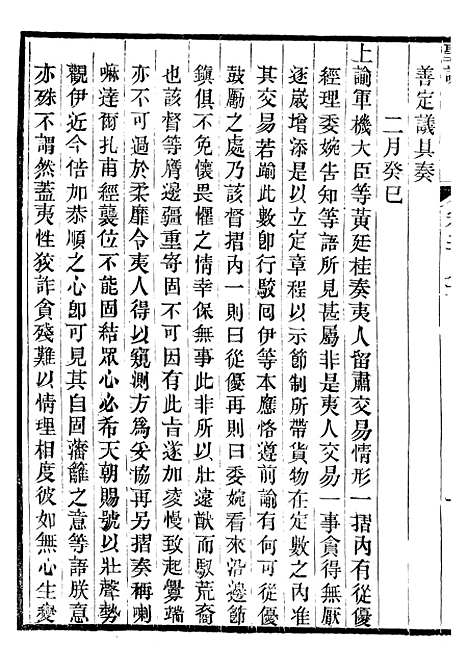 善定議具奏
二月癸巳
上諭軍機大臣等黃廷桂奏夷人留肅交易情形一摺內有從優
經理委婉告知等語所見甚屬非是夷人交易一事貪得無厭
逐嵗增添是以立定章程以示節制所帶貨物在定數之內准
其交易若踰此數卽行駁囘伊等本應恪遵前諭有何可從優
鼓勵之處乃該督摺內一則曰從優再則曰委婉看來沿邊節
鎮俱不免懷畏懼之情幸保無事此非所以壯遠猷而馭荒裔
也該督等膺邊疆重寄固不可因此旨遂加凌慢致起釁端
亦不可過於柔靡令夷人得以窺測方爲妥協再另摺奏稱喇
嘛達爾扎甫經襲位不能固結眾心必希天朝賜號以壯聲勢
觀伊近今倍加恭順之心卽可見其自固藩籬之意等語朕意
亦殊不謂然蓋夷性狡詐貪殘難以情理相度彼如無心生變